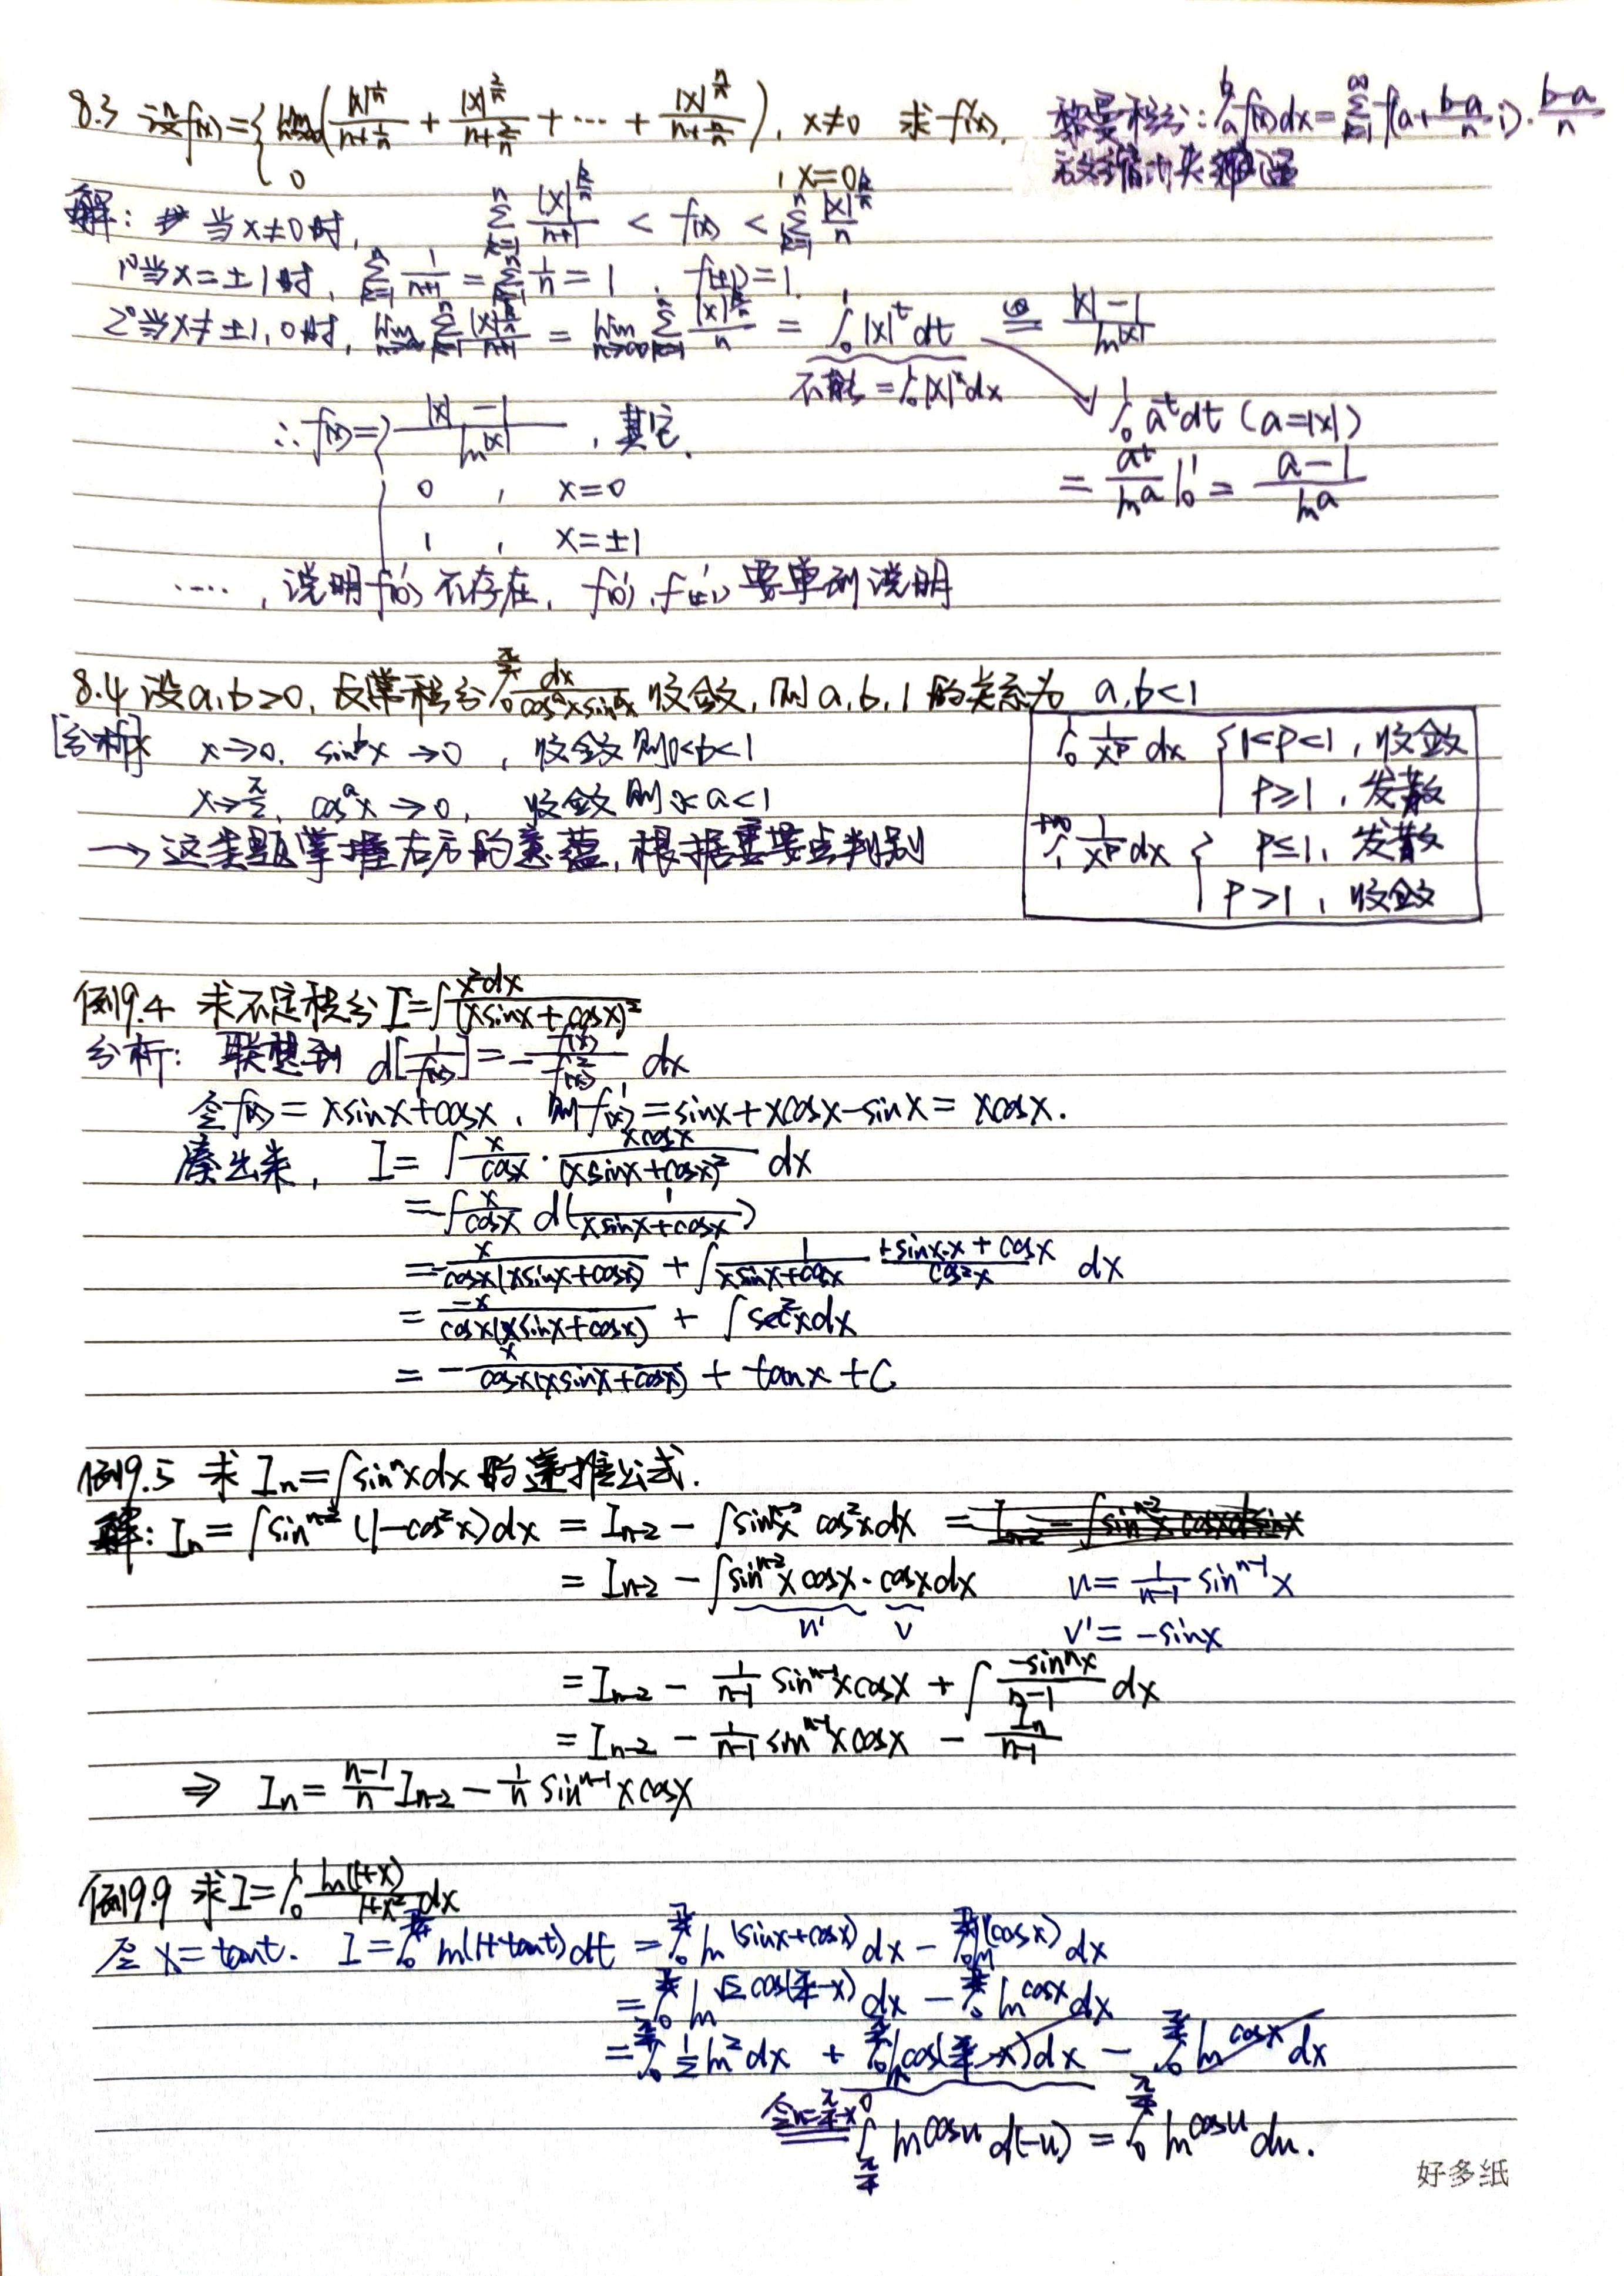 8.3 设f(x)={ lim n→∞ (|x|^(1/n)/(n+1/n) + |x|^(2/n)/(n+2/n) + ⋯ + |x|^(n/n)/(n+n/n)), x≠0 求f'(x).
0 , x=0
黎曼积分: ∫_a^b f(x)dx = Σ_{i=1}^∞ f(a+(b-a)/n i)·(b-a)/n
解: 当x≠0时, Σ_{k=1}^n |x|^(k/n)/(n+1) < f(x) < Σ_{k=1}^n |x|^(k/n)/n
1°当x=±1时, Σ_{k=1}^n 1/(n+1) = Σ_{k=1}^n 1/n = 1 , f(±1)=1.
2°当x≠±1,0时, lim n→∞ Σ_{k=1}^n |x|^(k/n)/(n+1) = lim n→∞ Σ_{k=1}^n |x|^(k/n)/n = ∫_0^1 |x|^t dt = (|x|-1)/ln|x|
不能=∫_0^1 |x|^x dx
∫_0^1 a^t dt (a=|x|)
= a^t/ln a |_0^1 = (a-1)/ln a
∴ f(x)={ (|x|-1)/ln|x| , 其它.
0 , x=0
1 , x=±1
⋯⋯, 说明f'(0)不存在, f'(0), f'(±1)要单列说明
8.4 设a,b>0, 反常积分∫_0^(π/2) dx/(cos^a x sin^b x) 收敛, 则a,b,1的关系为 a,b<1
[分析] x→0, sin^b x→0 , 收敛则0<b<1
x→π/2, cos^a x→0, 收敛则 a<1
→这类题掌握右方的意蕴, 根据要点判别
∫_0^1 1/x^p dx { 1<P<1, 收敛
P≥1, 发散
∫_1^(+∞) 1/x^p dx { P≤1, 发散
P>1, 收敛
例9.4 求不定积分I=∫x²dx/(xsinx+cosx)²
分析: 联想到 d[1/f(x)]=-f'(x)/f²(x) dx
令f(x)=xsinx+cosx, 则f'(x)=sinx+xcosx-sinx=xcosx.
凑出来, I=∫x/cosx·xcosx/(xsinx+cosx)² dx
=-∫x/cosx d(1/(xsinx+cosx))
=-x/(cosx(xsinx+cosx)) + ∫1/(xsinx+cosx) (+sinx·x+cosx)/cos²x dx
=-x/(cosx(xsinx+cosx)) + ∫sec²xdx
=-x/(cosx(xsinx+cosx)) + tanx+C
例9.5 求In=∫sin^n xdx的递推公式.
解: In=∫sin^(n-2)(1-cos²x)dx = I_(n-2) - ∫sin^(n-2)x cos²xdx =
= I_(n-2) - ∫sin^(n-2)x cosx·cosxdx u=1/(n-1) sin^(n-1)x
u' v v'=-sinx
=I_(n-2) - 1/(n-1) sin^(n-1)xcosx + ∫-sin^n x/(n-1) dx
=I_(n-2) - 1/(n-1) sin^(n-1)xcosx - In/(n-1)
⇒ In=(n-1)/n I_(n-2) - 1/n sin^(n-1)xcosx
例9.9 求I=∫_0^1 ln(1+x)/(1+x²) dx
令x=tant. I=∫_0^(π/4) ln(1+tant)dt = ∫_0^(π/4) ln(sinx+cosx) dx - ∫_0^(π/4) ln(cosx) dx
=∫_0^(π/4) ln √2cos(π/4-x) dx - ∫_0^(π/4) ln cosx dx
=∫_0^(π/4) 1/2 ln2 dx + ∫_0^(π/4) ln cos(π/4-x)dx - ∫_0^(π/4) ln cosx dx
令u=π/4-x ∫_(π/4)^0 ln cosu d(-u) = ∫_0^(π/4) ln cosu du.
好多纸